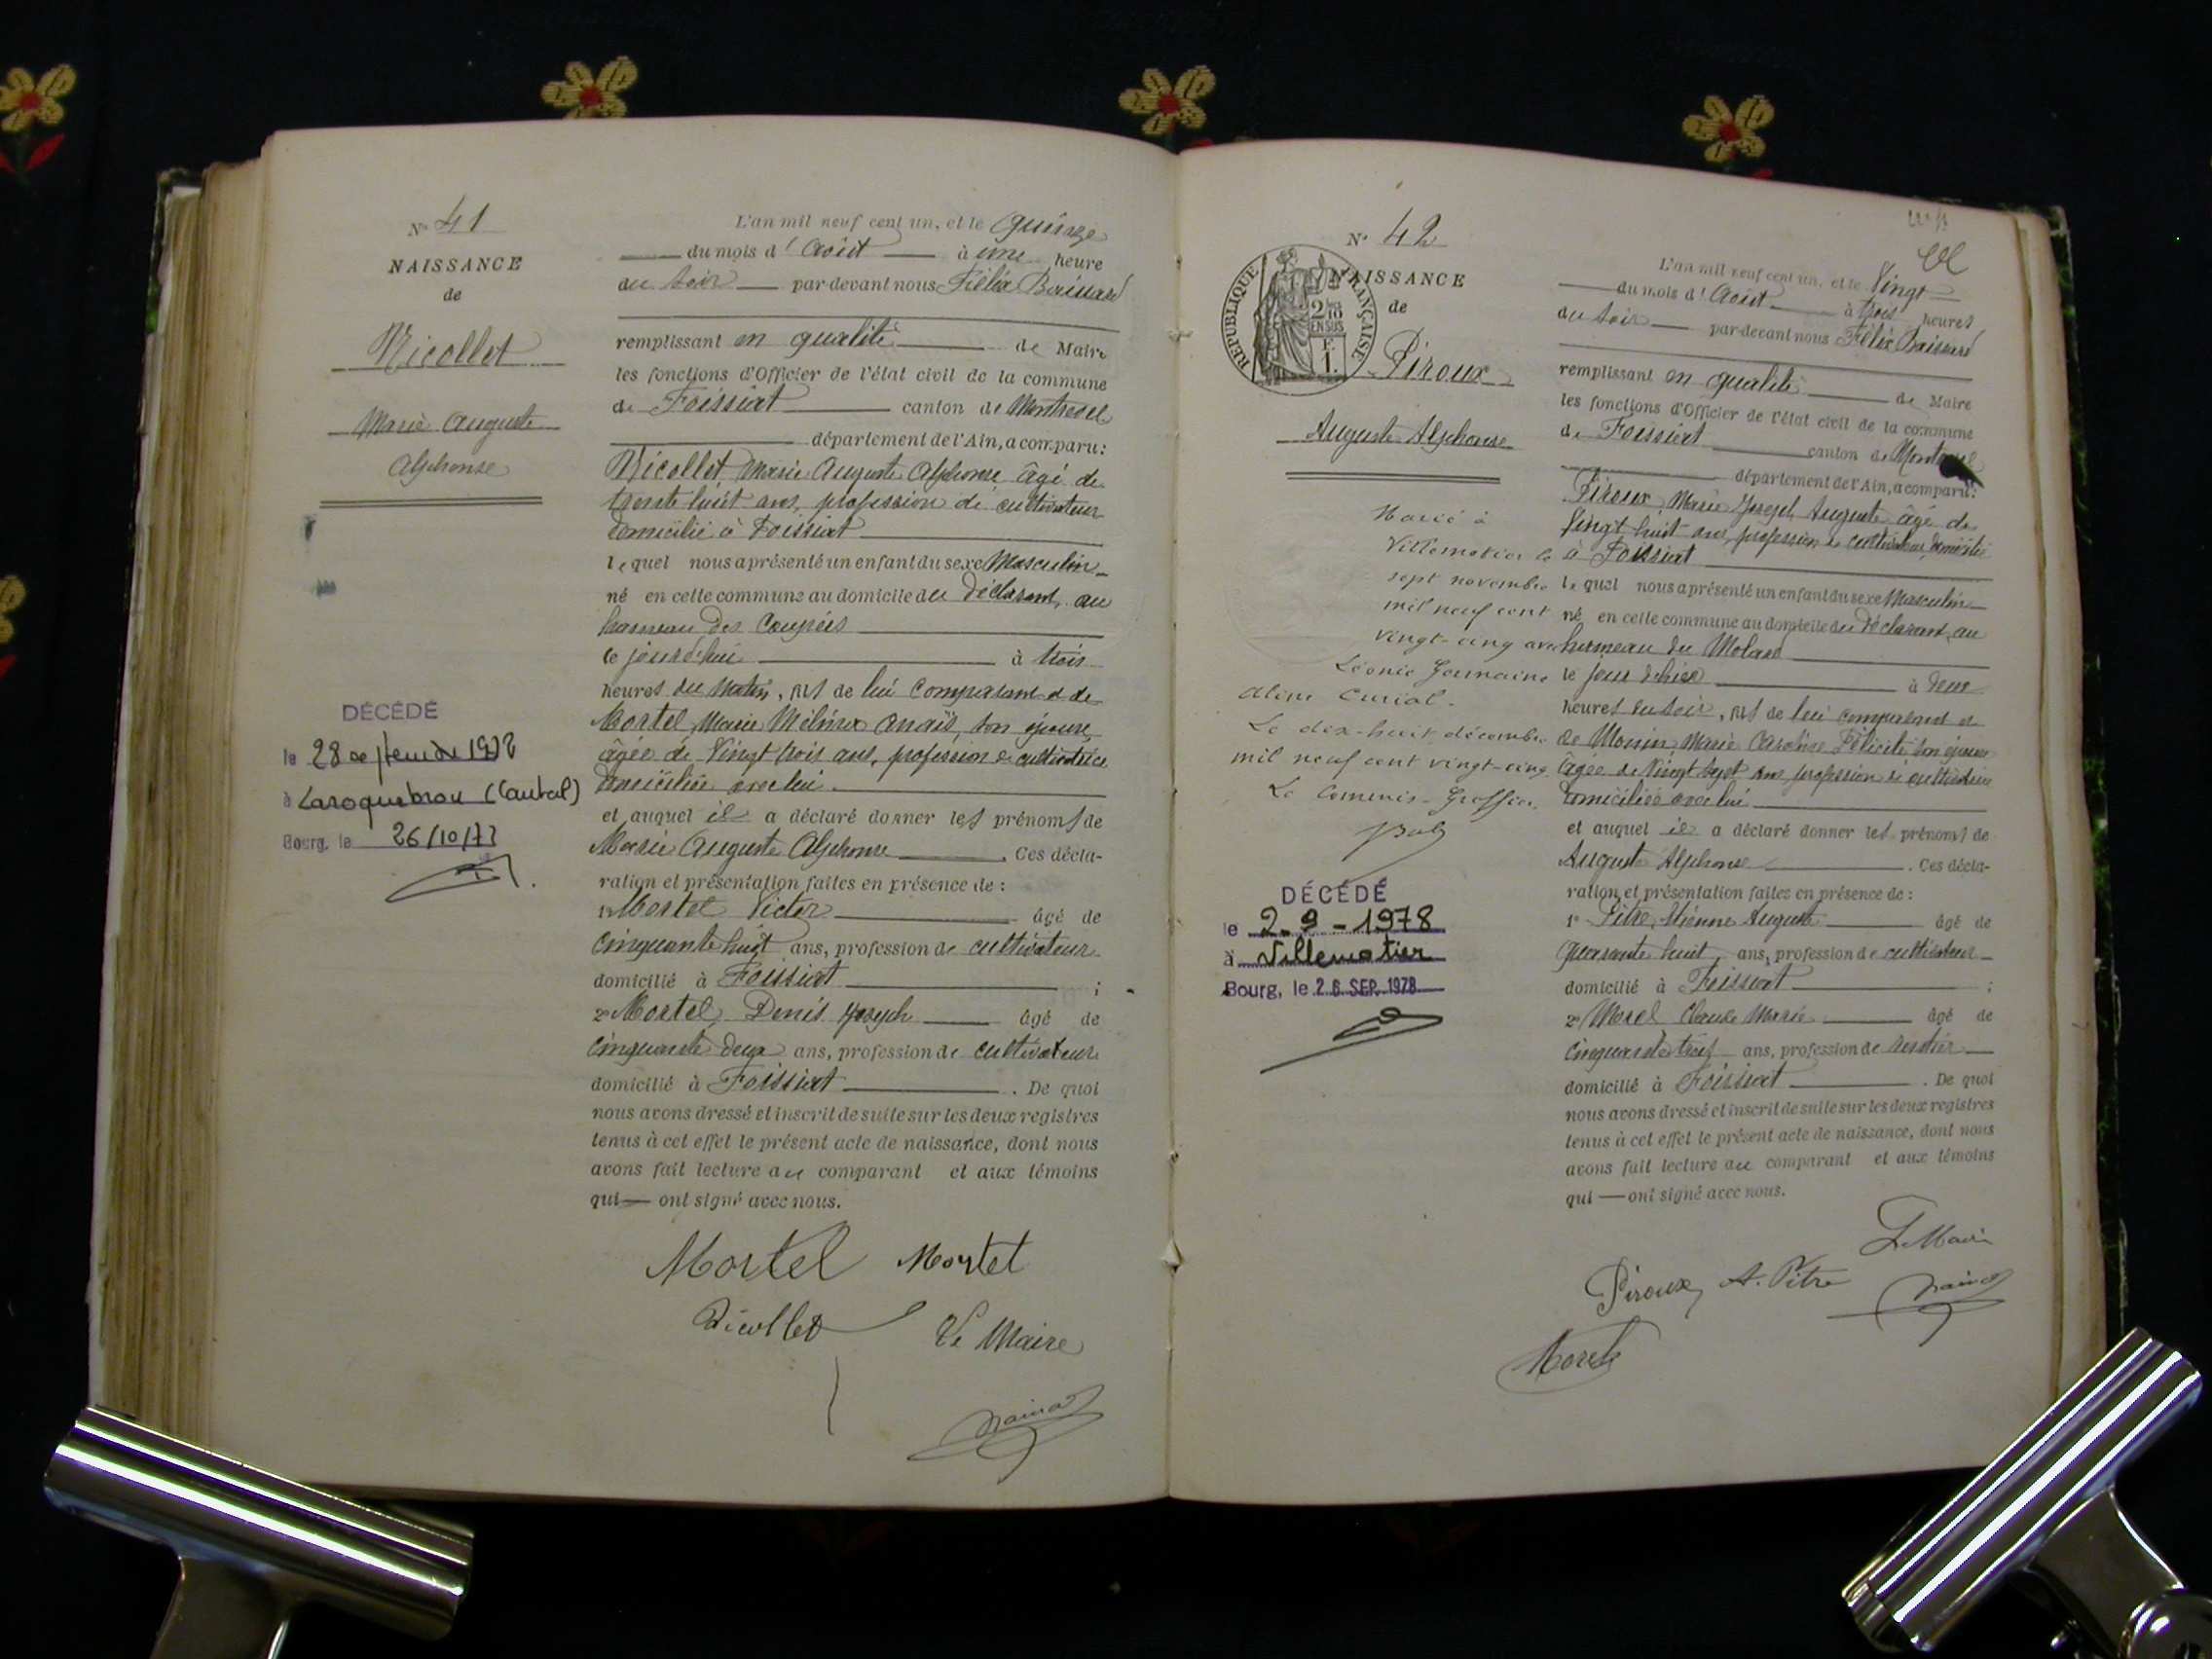 N° 41
NAISSANCE
de
Nicollet
Marie Auguste
Alphonse
DÉCÉDÉ
le 28 septembre 1972
à Laroquebrou (Cantal)
Bourg, le 26/10/72
L'an mil neuf cent un, et le quinze
du mois d'Août à une heure
du soir par-devant nous Félix Boissard
remplissant en qualité de Maire
les fonctions d'Officier de l'état civil de la commune
de Foissiat canton de Montrevel
département de l'Ain, a comparu:
Nicollet Marie Auguste Alphonse âgé de
trente huit ans, profession de cultivateur
domicilié à Foissiat
lequel nous a présenté un enfant du sexe Masculin
né en cette commune au domicile du déclarant, au
hameau des Coupées
le jourd'hui à trois
heures du matin, fils de lui comparant et de
Mortel, Marie Mélina Anaïs, son épouse
âgée de Vingt trois ans, profession de cultivatrice
domiciliée avec lui.
et auquel il a déclaré donner les prénoms de
Marie Auguste Alphonse. Ces décla-
ration et présentation faites en présence de:
1° Mortel Victor âgé de
cinquante huit ans, profession de cultivateur
domicilié à Foissiat ;
2° Mortel, Denis Joseph âgé de
cinquante deux ans, profession de cultivateur
domicilié à Foissiat. De quoi
nous avons dressé et inscrit de suite sur les deux registres
tenus à cet effet le présent acte de naissance, dont nous
avons fait lecture au comparant et aux témoins
qui ont signé avec nous.
Mortel Mortel
Nicollet Le Maire
N° 42
NAISSANCE
de
REPUBLIQUE FRANÇAISE
2/10 EN SUS
F. 1.
Piroux
Auguste Alphonse
Marié à
Villemotier le
sept novembre
mil neuf cent
vingt-cinq avec
Léonie Germaine
Aline Curial.
Le dix-huit décembre
mil neuf cent vingt-cinq
Le Commis-Greffier,
DÉCÉDÉ
le 2-9-1978
à Villemotier
Bourg, le 26 SEP. 1978
L'an mil neuf cent un, et le Vingt
du mois d'Août à trois heures
du soir par-devant nous Félix Boissard
remplissant en qualité de Maire
les fonctions d'Officier de l'état civil de la commune
de Foissiat canton de Montrevel
département de l'Ain, a comparu:
Piroux, Marie Joseph Auguste âgé de
Vingt huit ans, profession de cultivateur, domicilié
à Foissiat
lequel nous a présenté un enfant du sexe Masculin
né en cette commune au domicile du déclarant, au
hameau du Molard
le jour d'hier à deux
heures du soir, fils de lui comparant et
de Monin, Marie Caroline Félicité son épouse
âgée de Vingt sept ans profession de cultivatrice
domiciliée avec lui
et auquel il a déclaré donner les prénoms de
Auguste Alphonse. Ces décla-
ration et présentation faites en présence de:
1° Pitre, Etienne Auguste âgé de
quarante huit ans, profession de cultivateur
domicilié à Foissiat ;
2° Morel Claude Marie âgé de
cinquante ans, profession de rentier
domicilié à Foissiat. De quoi
nous avons dressé et inscrit de suite sur les deux registres
tenus à cet effet le présent acte de naissance, dont nous
avons fait lecture au comparant et aux témoins
qui ont signé avec nous.
Le Maire
Piroux A. Pitre
Morel